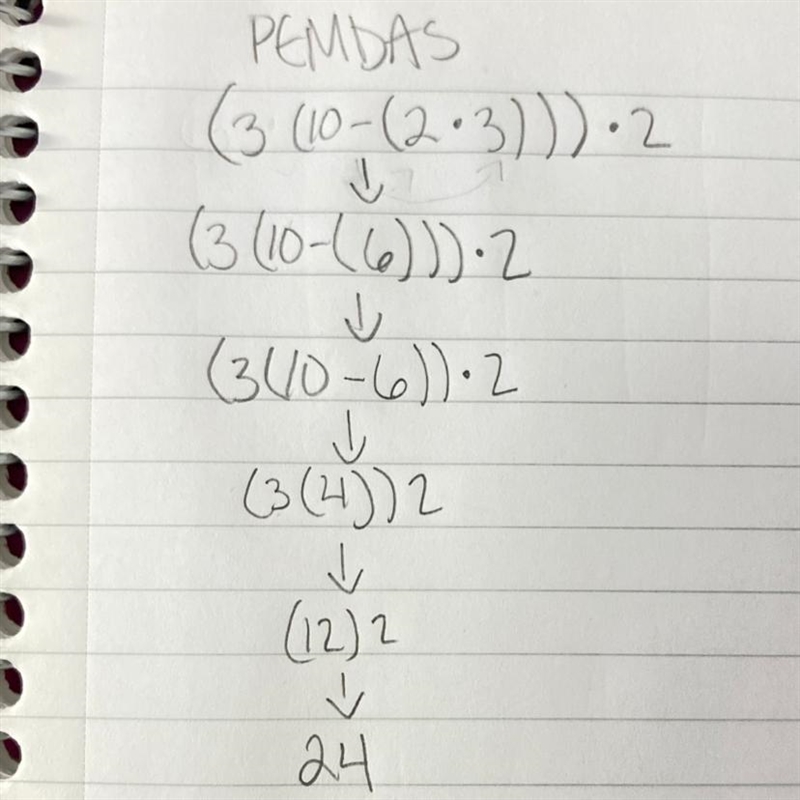 PEMDAS
(3(10-(2·3)))·2
↓
(3(10-(6)))·2
↓
(3(10-6))·2
↓
(3(4))2
↓
(12)2
↓
24